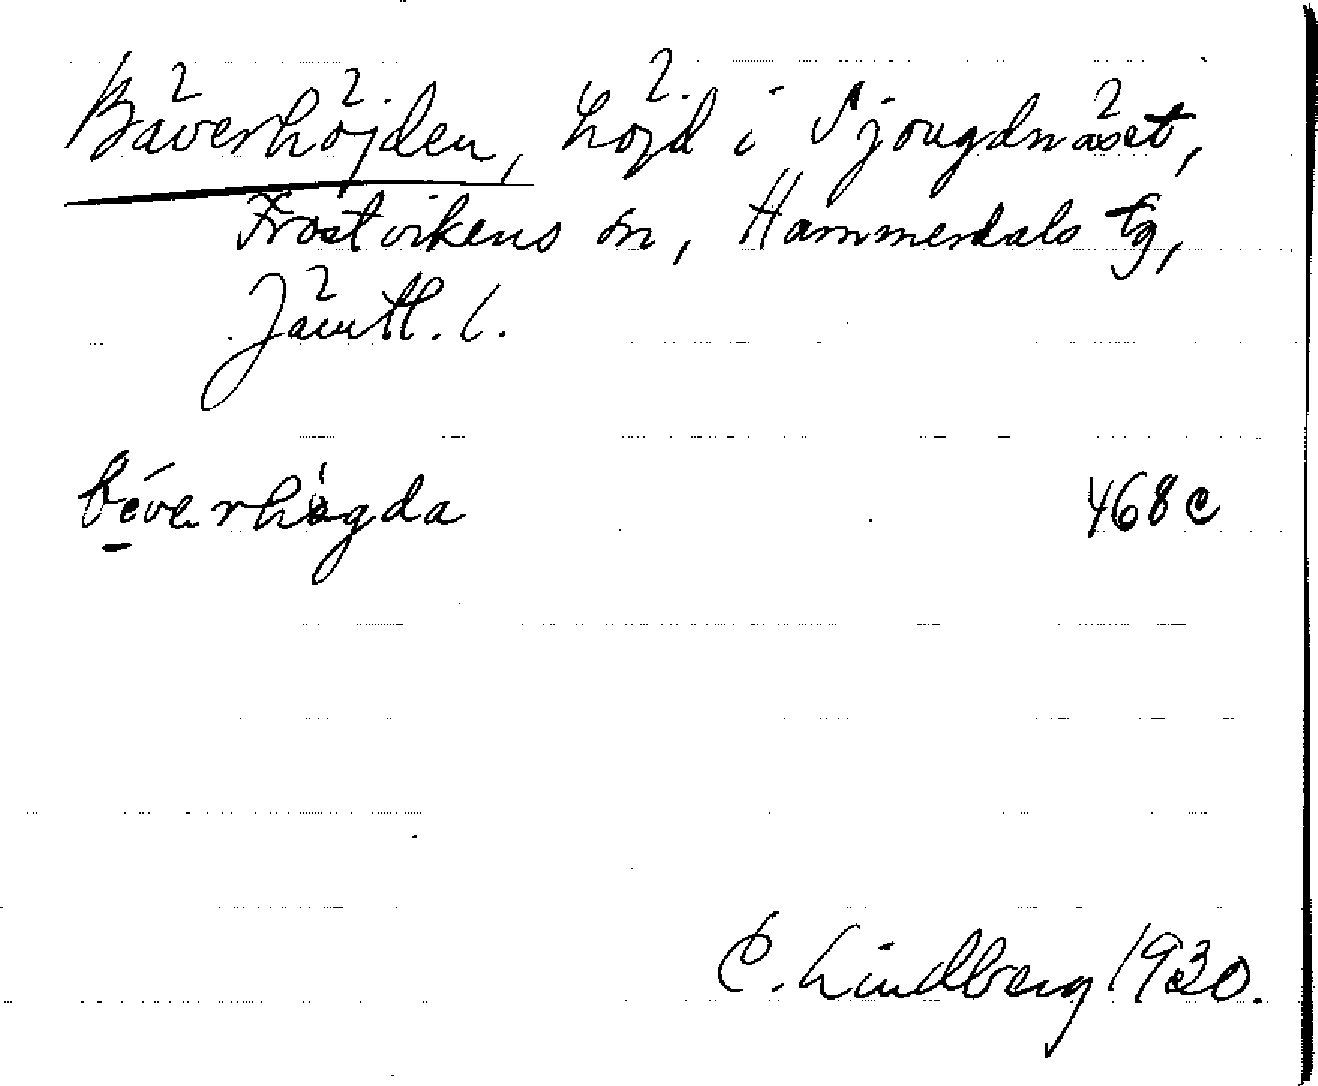 Bäverhöjden, höjd i Sjougdnäset,
Frostvikens sn, Hammerdals tg,
Jämtl. l.
béverhøgda 468 c
C. Lindberg 1930.